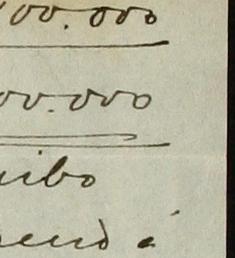 00.000
00.000
uibo
rend á